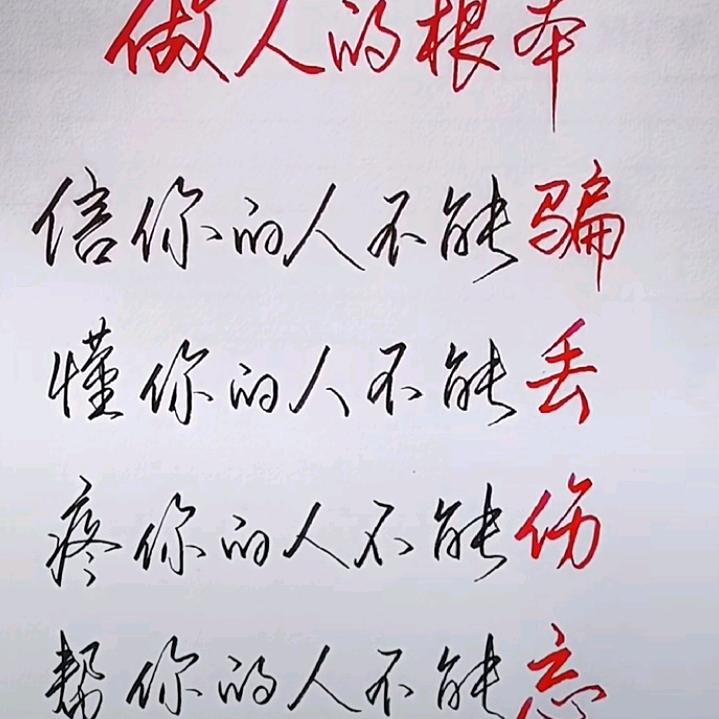 做人的根本
信你的人不能骗
懂你的人不能丢
疼你的人不能伤
帮你的人不能忘